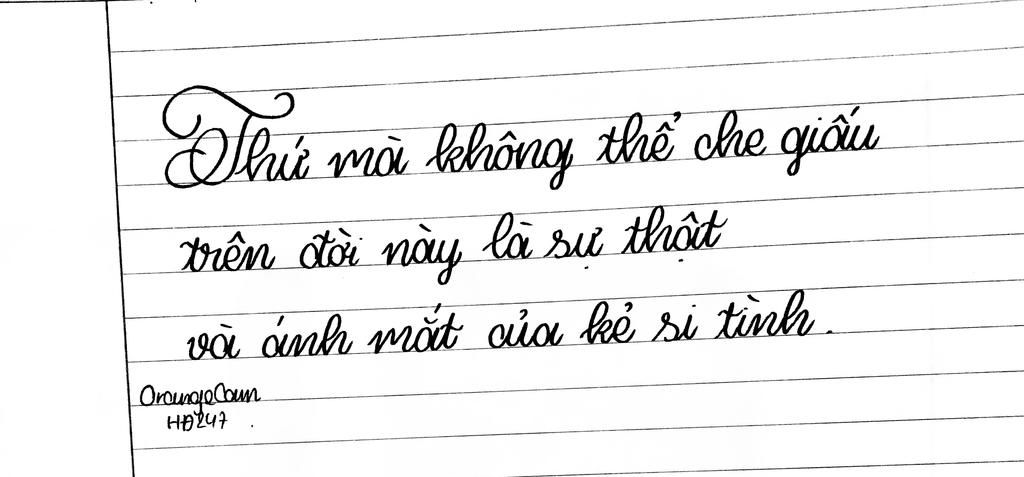 Thứ mà không thể che giấu
trên đời này là sự thật
và ánh mắt của kẻ si tình.
OrangeCam
HĐ247